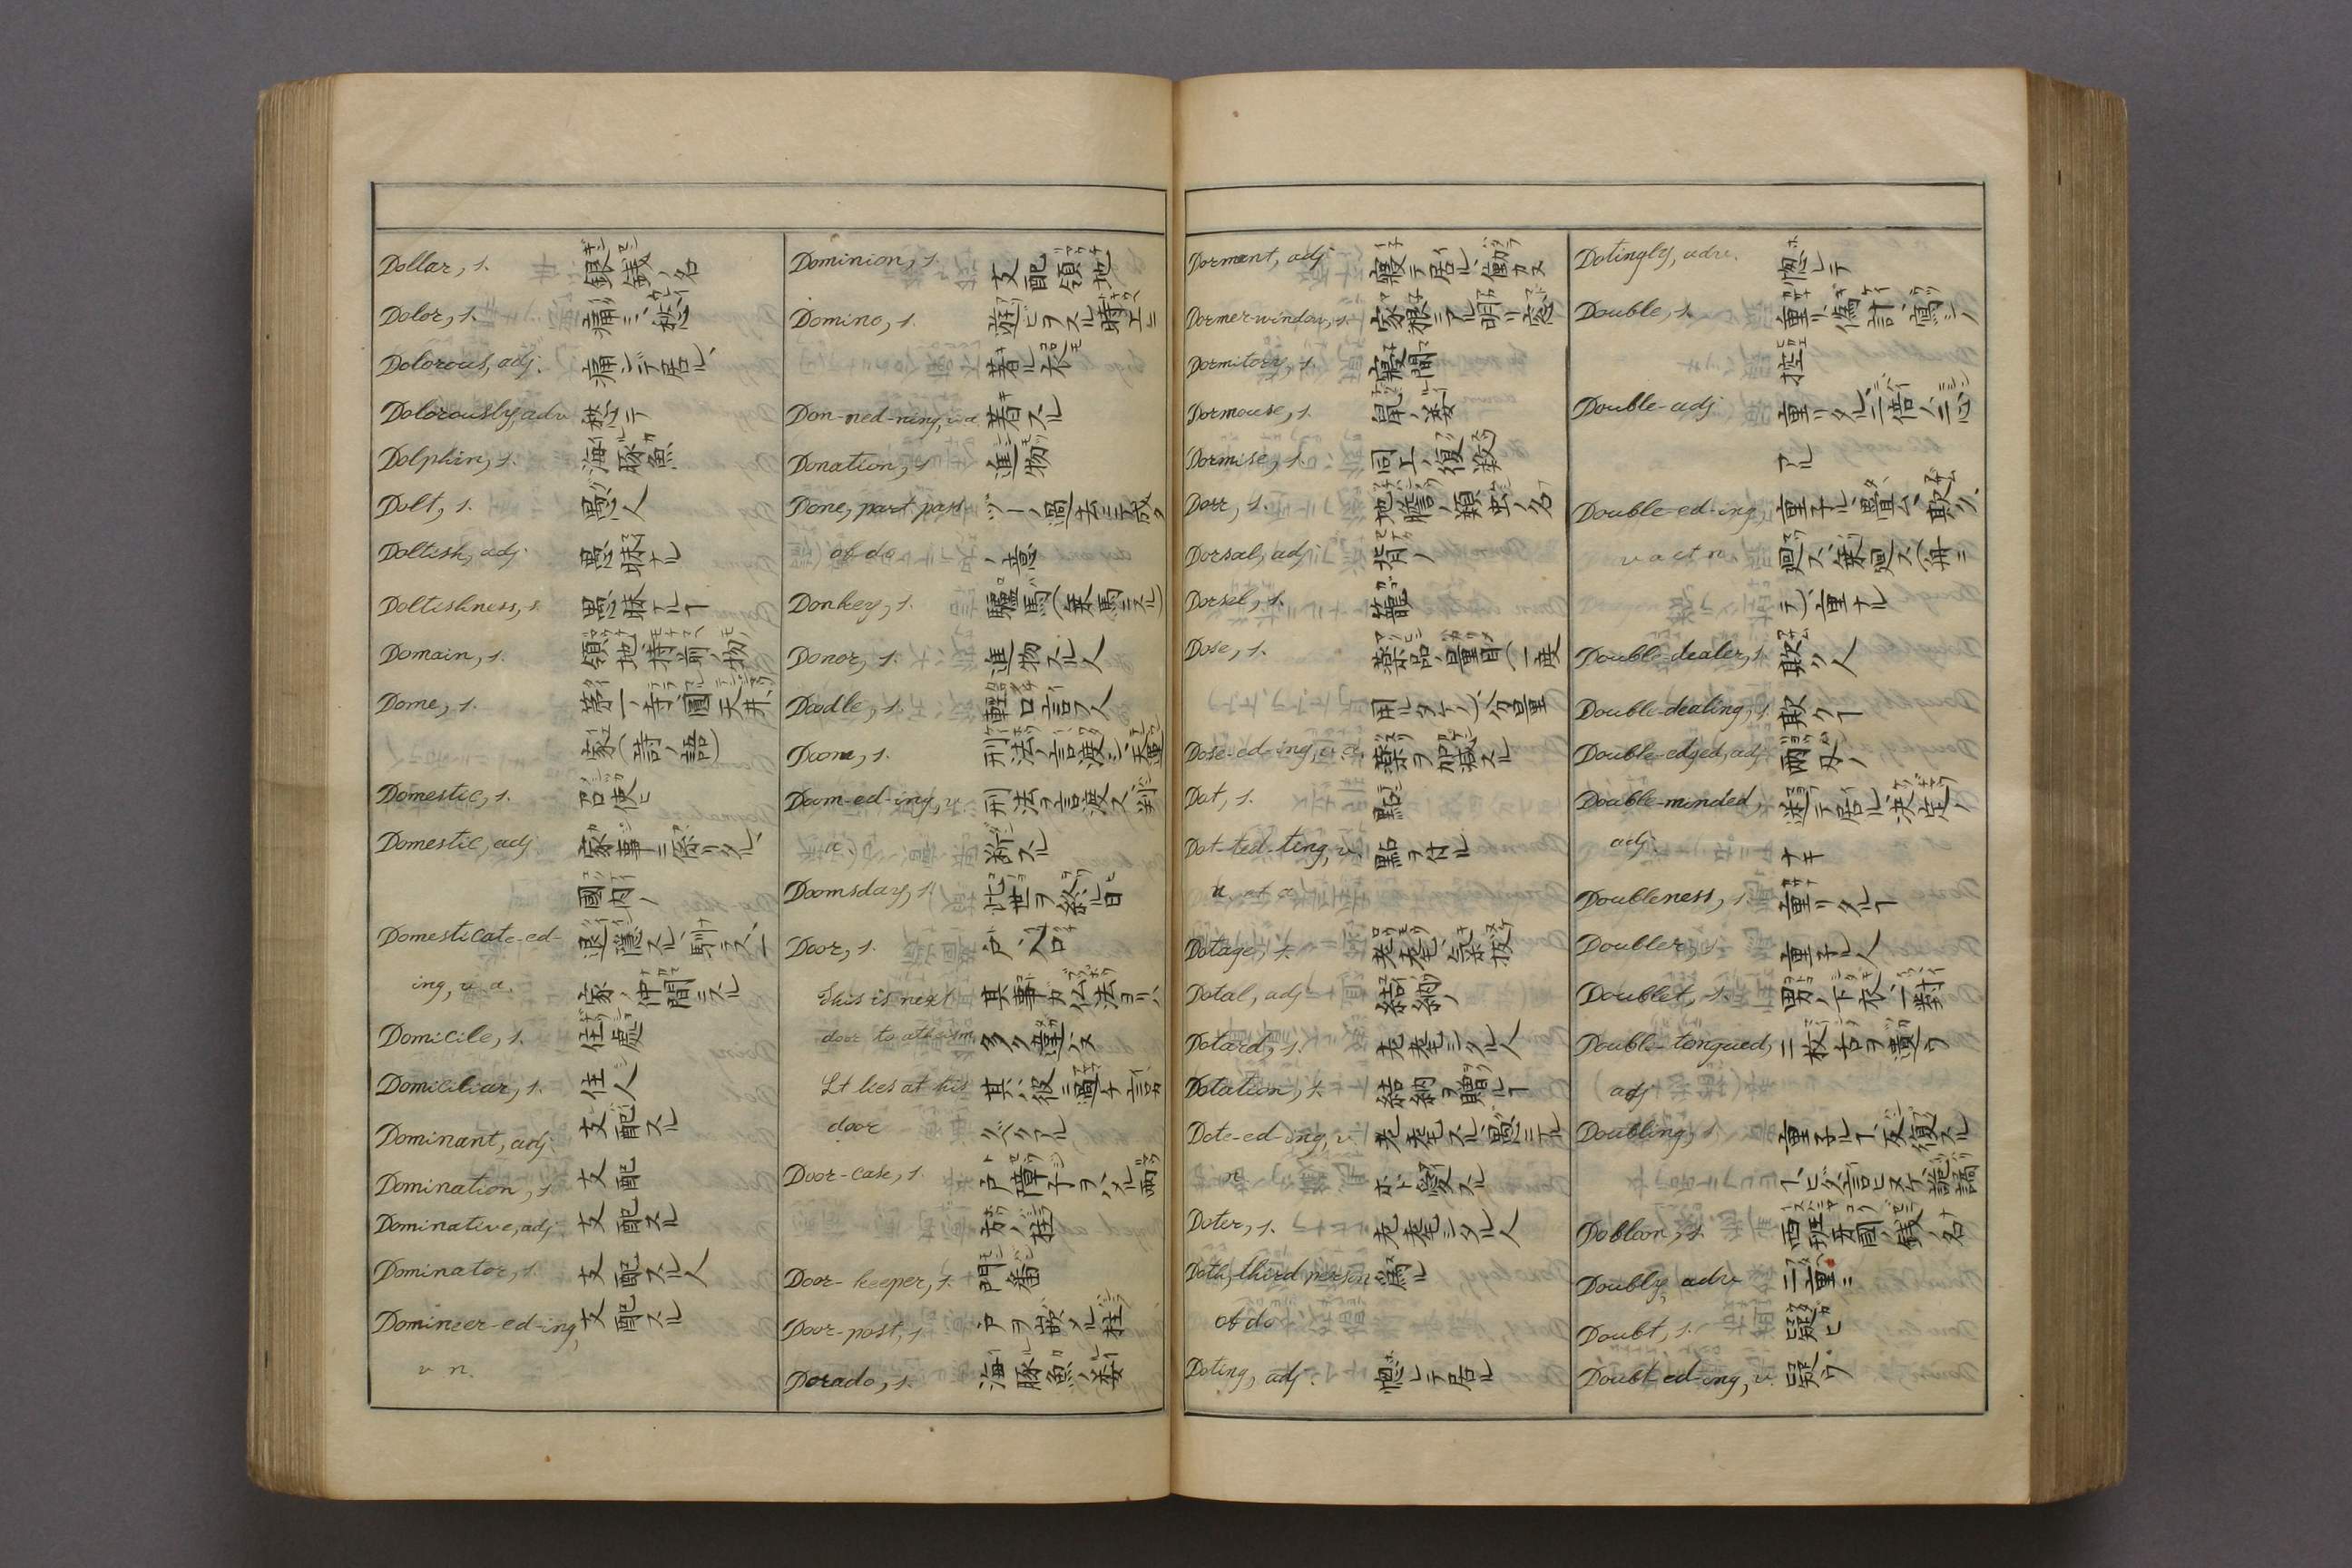 Dollar, s. 銀錢ノ名
Dolor, s. 痛ミ、愁
Dolorous, adj. 痛ンデ居ル、
Dolorously, adv 愁テ
Dolphin, s. 海豚魚
Dolt, s. 愚人
Doltish, adj. 愚昧ナル
Doltishness, s. 愚昧ナルヿ
Domain, s. 領地、持前ノ物
Dome, s. 第一ノ寺、圓天井、
家(詩ノ語)
Domestic, s. 召使ヒ
Domestic, adj. 家事ニ係リタル、
國内ノ
Domesticate-ed- 退隱スル、馴ラス、一
ing, v. a. 家ノ仲間ニスル
Domicile, s. 住處
Domiciliar, s. 住人
Dominant, adj. 支配スル
Domination, s. 支配
Dominative, adj. 支配スル
Dominator, s. 支配スル人
Domineer-ed-ing, 支配スル
v n.
Dominion, s. 支配、領地
Domino, s. 遊ビヲスル時ニ上ニ
著ル衣
Don-ned-ning, v.a. 著スル
Donation, s. 進物
Done, part pass ヅーノ過去ニテ成タ
of do ノ意
Donkey, s. 驢馬(乗馬ニスル)
Donor, s. 進物スル人
Doodle, s. 輕口言フ人
Doom, s. 刑法ノ言渡シ、天運
Doom-ed-ing, v. 刑法ヲ言渡ス、判
a 斷スル
Doomsday, s. 此世ヲ終ル日
Door, s. 戸、入口
This is next 其事ガ仏法ヨリハ
door to atheism 多ク違ハヌ
It lies at his 其ハ彼ニ過チ言
door クベクアル
Door-case, s. 戸障子ヲハメル兩
方ノ柱
Door-keeper, s. 門番
Door-post, s. 戸ヲ嵌メル柱
Dorado, s. 海豚魚ノ類
Dormant, adj. 寢テ居ル、働カヌ
Dormer-window, s. 家根ニアル明リ窓
Dormitory, s. 寢間
Dormouse, s. 鼠ノ類
Dormise, s. 同上ノ復數
Dorr, s. 地膽ノ類、虫ノ名
Dorsal, adj. 背ノ
Dorsel, s. 籠
Dose, s. 藥品ノ量目(一度
用ルタケノ)、分量
Dose-ed-ing, v. a. 藥ヲ加減スル
Dot, s. 點
Dot-ted-ting, v. 點ヲ付ル
n. et a.
Dotage, s. 老耄、氣拔
Dotal, adj 結納ノ
Dotard, s. 老耄シタル人
Dotation, s. 結納ヲ贈ルヿ
Dote-ed-ing, v. 老耄スル、愚ニナル
n ホド愛スル
Doter, s. 老耄シタル人
Doth, third person 為ル
of do
Doting, adj. 惚レテ居ル
Dotingly, adv. 惚レテ
Double, s. 重リ、僞計、寫シ、
控
Double-adj 重リタル、二倍ノ、二心
アル
Double-ed-ing, 重子ル、疊ム、欺ク、
v a et n. 廻ス、乗廻ス(舟ニ
テ)、重ナル
Double-dealer, s. 欺ク人
Double-dealing, s. 欺クヿ
Double-edged, adj. 兩刃ノ
Double-minded, 迷テ居ル、決定ノ
adj. ナキ
Doubleness, s. 重リタルヿ
Doubler, s. 重子ル人
Doublet, s. 男ノ下衣、一對
Double-tongued, 二枚舌ヲ遣フ
adj
Doubling, s. 重子ルヿ、反復スル
Dobloon, s. 西班牙國ノ錢ノ名
Doubly, adv 二重ニ
Doubt, s. 疑ヒ
Doubt-ed-ing, v. 疑フ